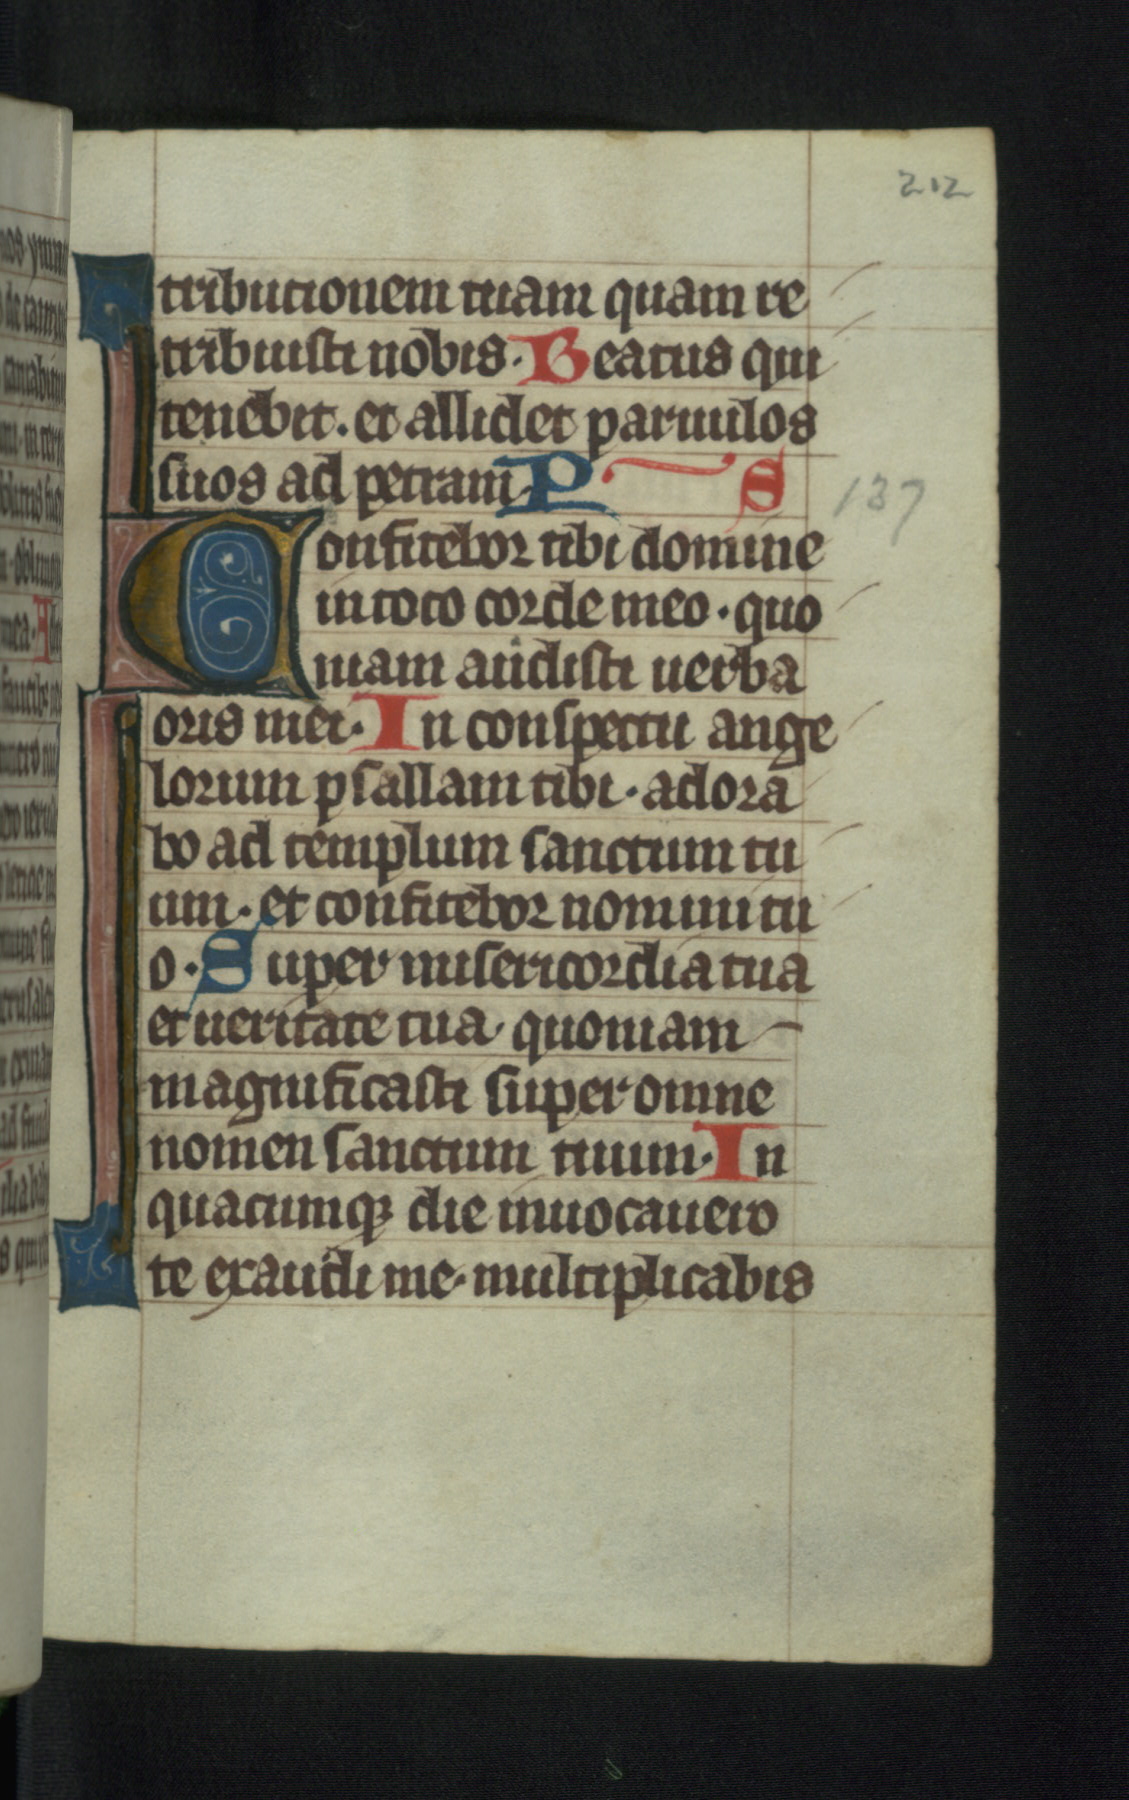 212
tributionem tuam quam re
tribuisti nobis. Beatus qui
tenebit. et allidet paruulos
suos ad petram. P S
137
Confitebor tibi domine
in toto corde meo. quo
niam audisti uerba
oris mei. In conspectu ange
lorum psallam tibi. adora
bo ad templum sanctum tu
um. et confitebor nomini tu
o. Super misericordia tua
et ueritate tua. quoniam
magnificasti super omne
nomen sanctum tuum. In
quacumqꝫ die inuocauero
te exaudi me. multiplicabis